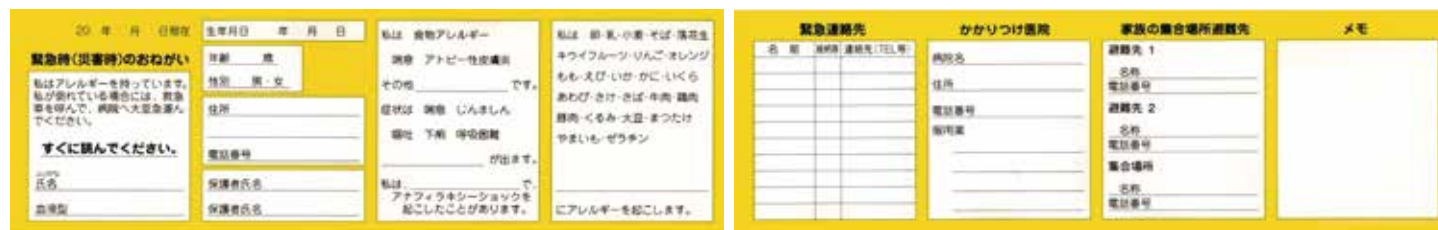 20 年 月 日現在
緊急時(災害時)のおねがい
私はアレルギーを持っています。
私が倒れている場合には、救急
車を呼んで、病院へ大至急運ん
でください。
すぐに読んでください。
氏名
血液型
生年月日 年 月 日
年齢 歳
性別 男・女
住所
電話番号
保護者氏名
保護者氏名
私は 食物アレルギー
喘息 アトピー性皮膚炎
その他 です。
症状は 喘息 じんましん
嘔吐 下痢 呼吸困難
が出ます。
私は で、
アナフィラキシーショックを
起こしたことがあります。
私は 卵・乳・小麦・そば・落花生
キウイフルーツ・りんご・オレンジ
もも・えび・いか・かに・いくら
あわび・さけ・さば・牛肉・鶏肉
豚肉・くるみ・大豆・まつたけ
やまいも・ゼラチン
にアレルギーを起こします。
緊急連絡先
名 前 連絡先(TEL等)
かかりつけ医院
病院名
住所
電話番号
服用薬
家族の集合場所避難先
避難先 1
名称
電話番号
避難先 2
名称
電話番号
集合場所
名称
電話番号
メモ